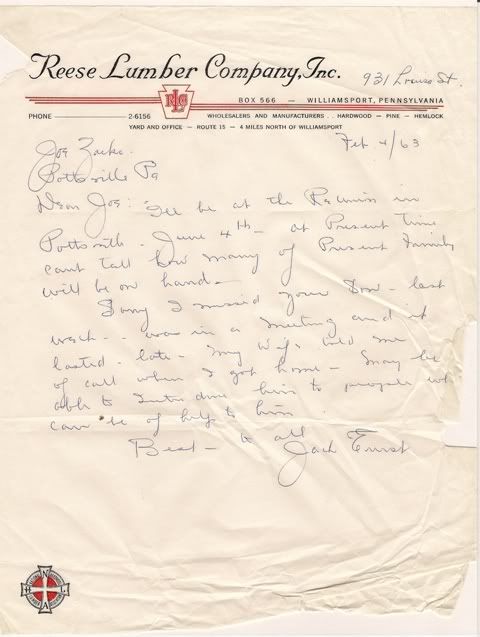 Reese Lumber Company, Inc.
931 Louisa St.
RLC
BOX 566 — WILLIAMSPORT, PENNSYLVANIA
PHONE 2-6156
WHOLESALERS AND MANUFACTURERS . . HARDWOOD — PINE — HEMLOCK
YARD AND OFFICE — ROUTE 15 — 4 MILES NORTH OF WILLIAMSPORT
Feb 4/63
Joe Zacko
Pottsville Pa
Dear Joe: I'll be at the Reunion in
Pottsville - June 4th - at Present time
cant tell how many of Present family
will be on hand -
Sorry I missed your Son - last
week - - was in a meeting and it
lasted - late - my Wife told me
of call when I got home - may be
able to
him to people
can be of help to him.
Best - to all
Jack Ernst